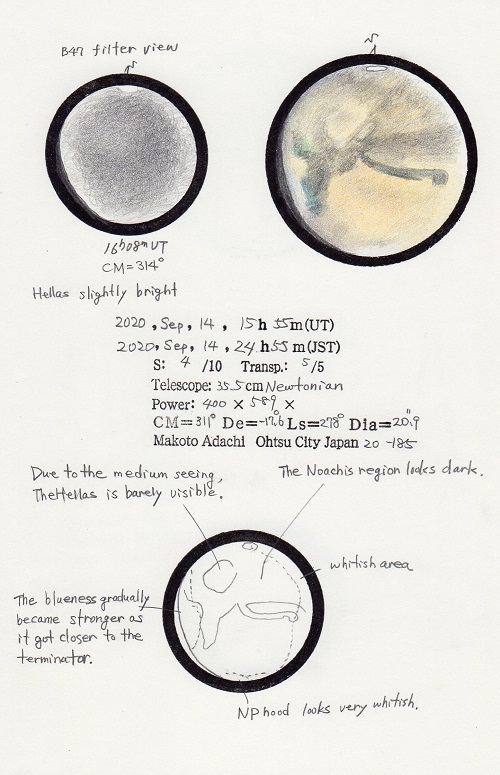 B47 filter view
N
N
16h08m UT
CM=314°
Hellas slightly bright
2020, Sep, 14, 15h 55m(UT)
2020, Sep, 14, 24h55m(JST)
S: 4 /10 Transp.: 5/5
Telescope: 35.5cm Newtonian
Power: 400 × 589 ×
CM=311° De=-17.6° Ls=278° Dia=20".9
Makoto Adachi Ohtsu City Japan 20-185
Due to the medium seeing,
The Hellas is barely visible.
The Noachis region looks dark.
whitish area
The blueness gradually
became stronger as
it got closer to the
terminator.
NP hood looks very whitish.